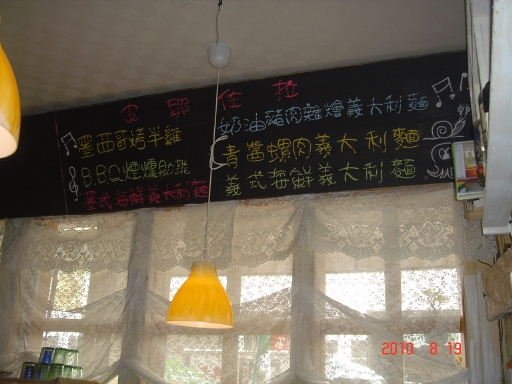 皮耶佐拉
墨西哥烤半雞
B.B.Q.煙燻肋排
墨式海鮮義大利麵
奶油豬肉雜燴義大利麵
青醬螺肉義大利麵
義式海鮮義大利麵
2010 8 19